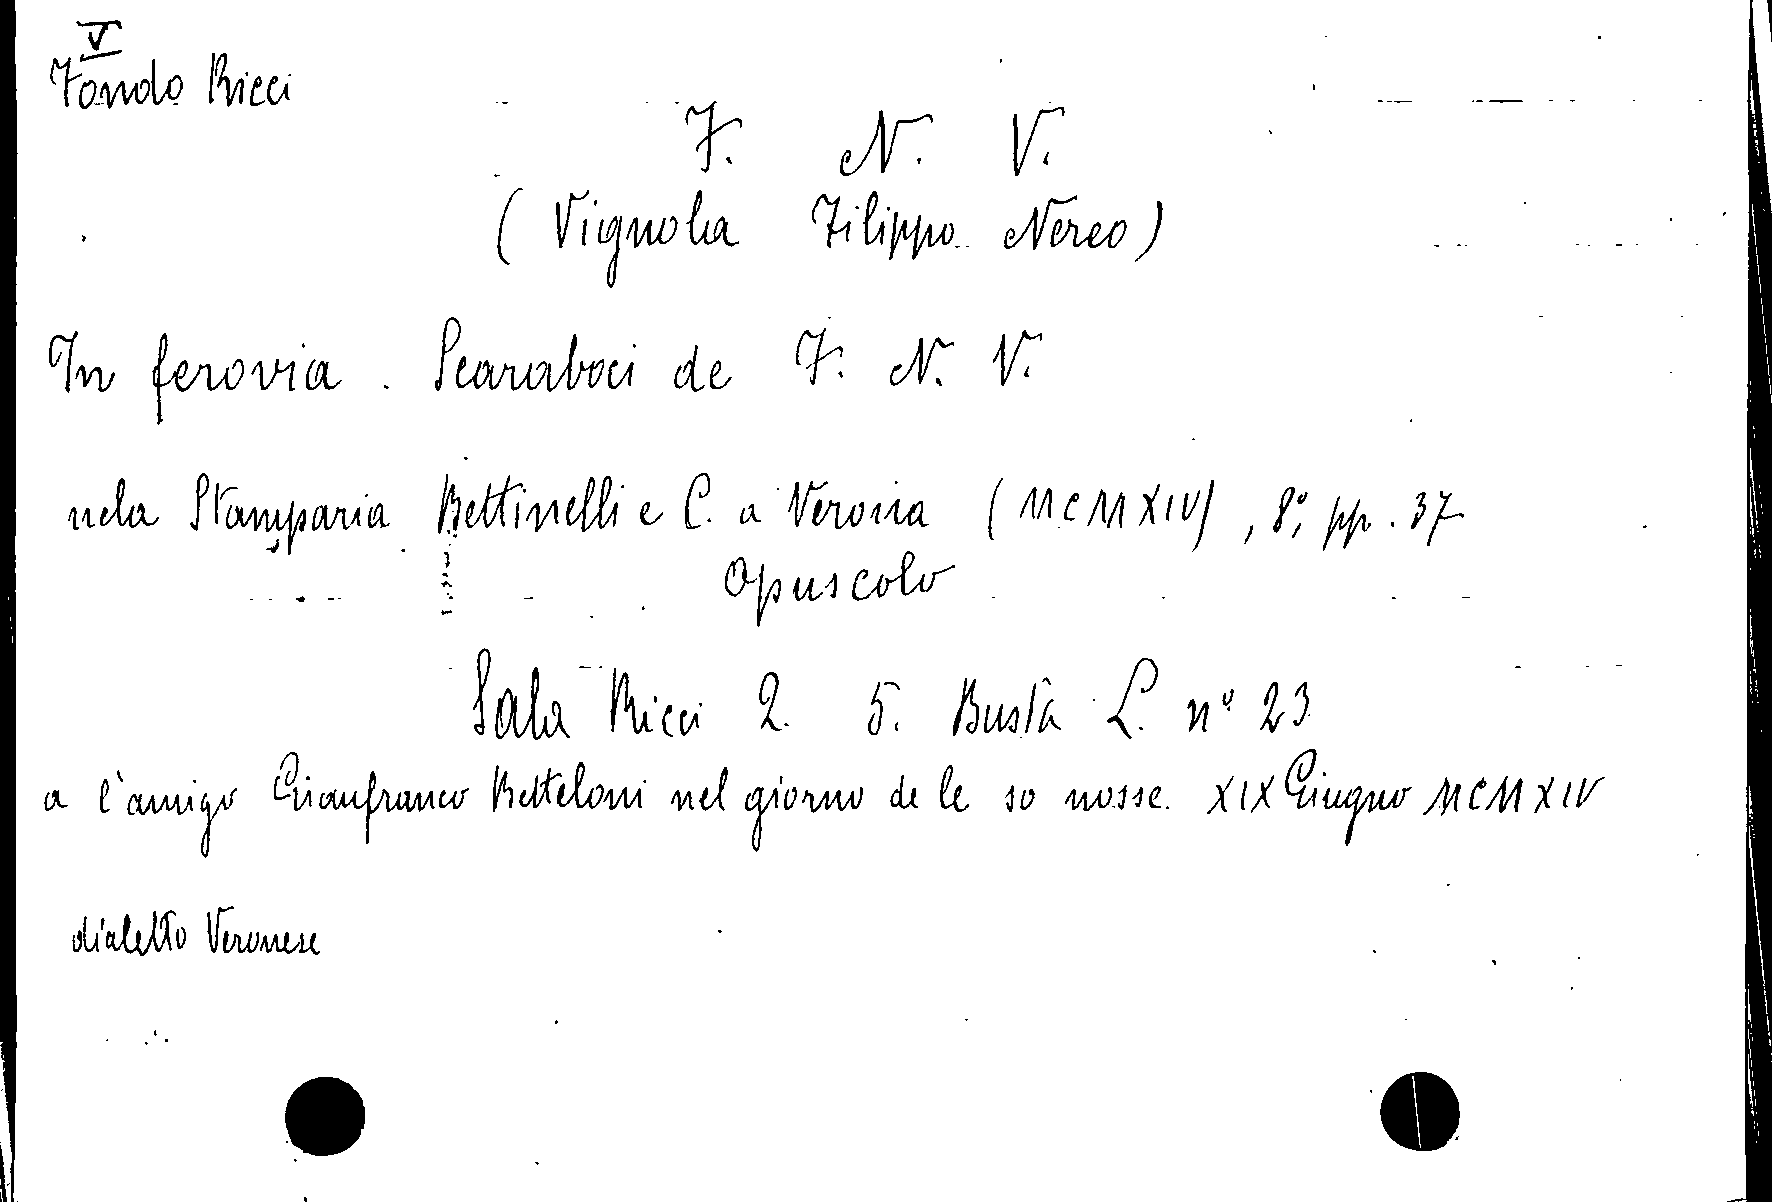 V
Fondo Ricci
F. N. V.
(Vignola Filippo Nereo)
In ferovia. Scaraboci de F. N. V.
nela Stamparia Bettinelli e C. a Verona (MCMXIV), 8°, pp. 37
Opuscolo
Sala Ricci 2. 5. Busta L. n° 23
a l'amigo Gianfranco Betteloni nel giorno de le so nosse. XIX Giugno MCMXIV
dialetto Veronese